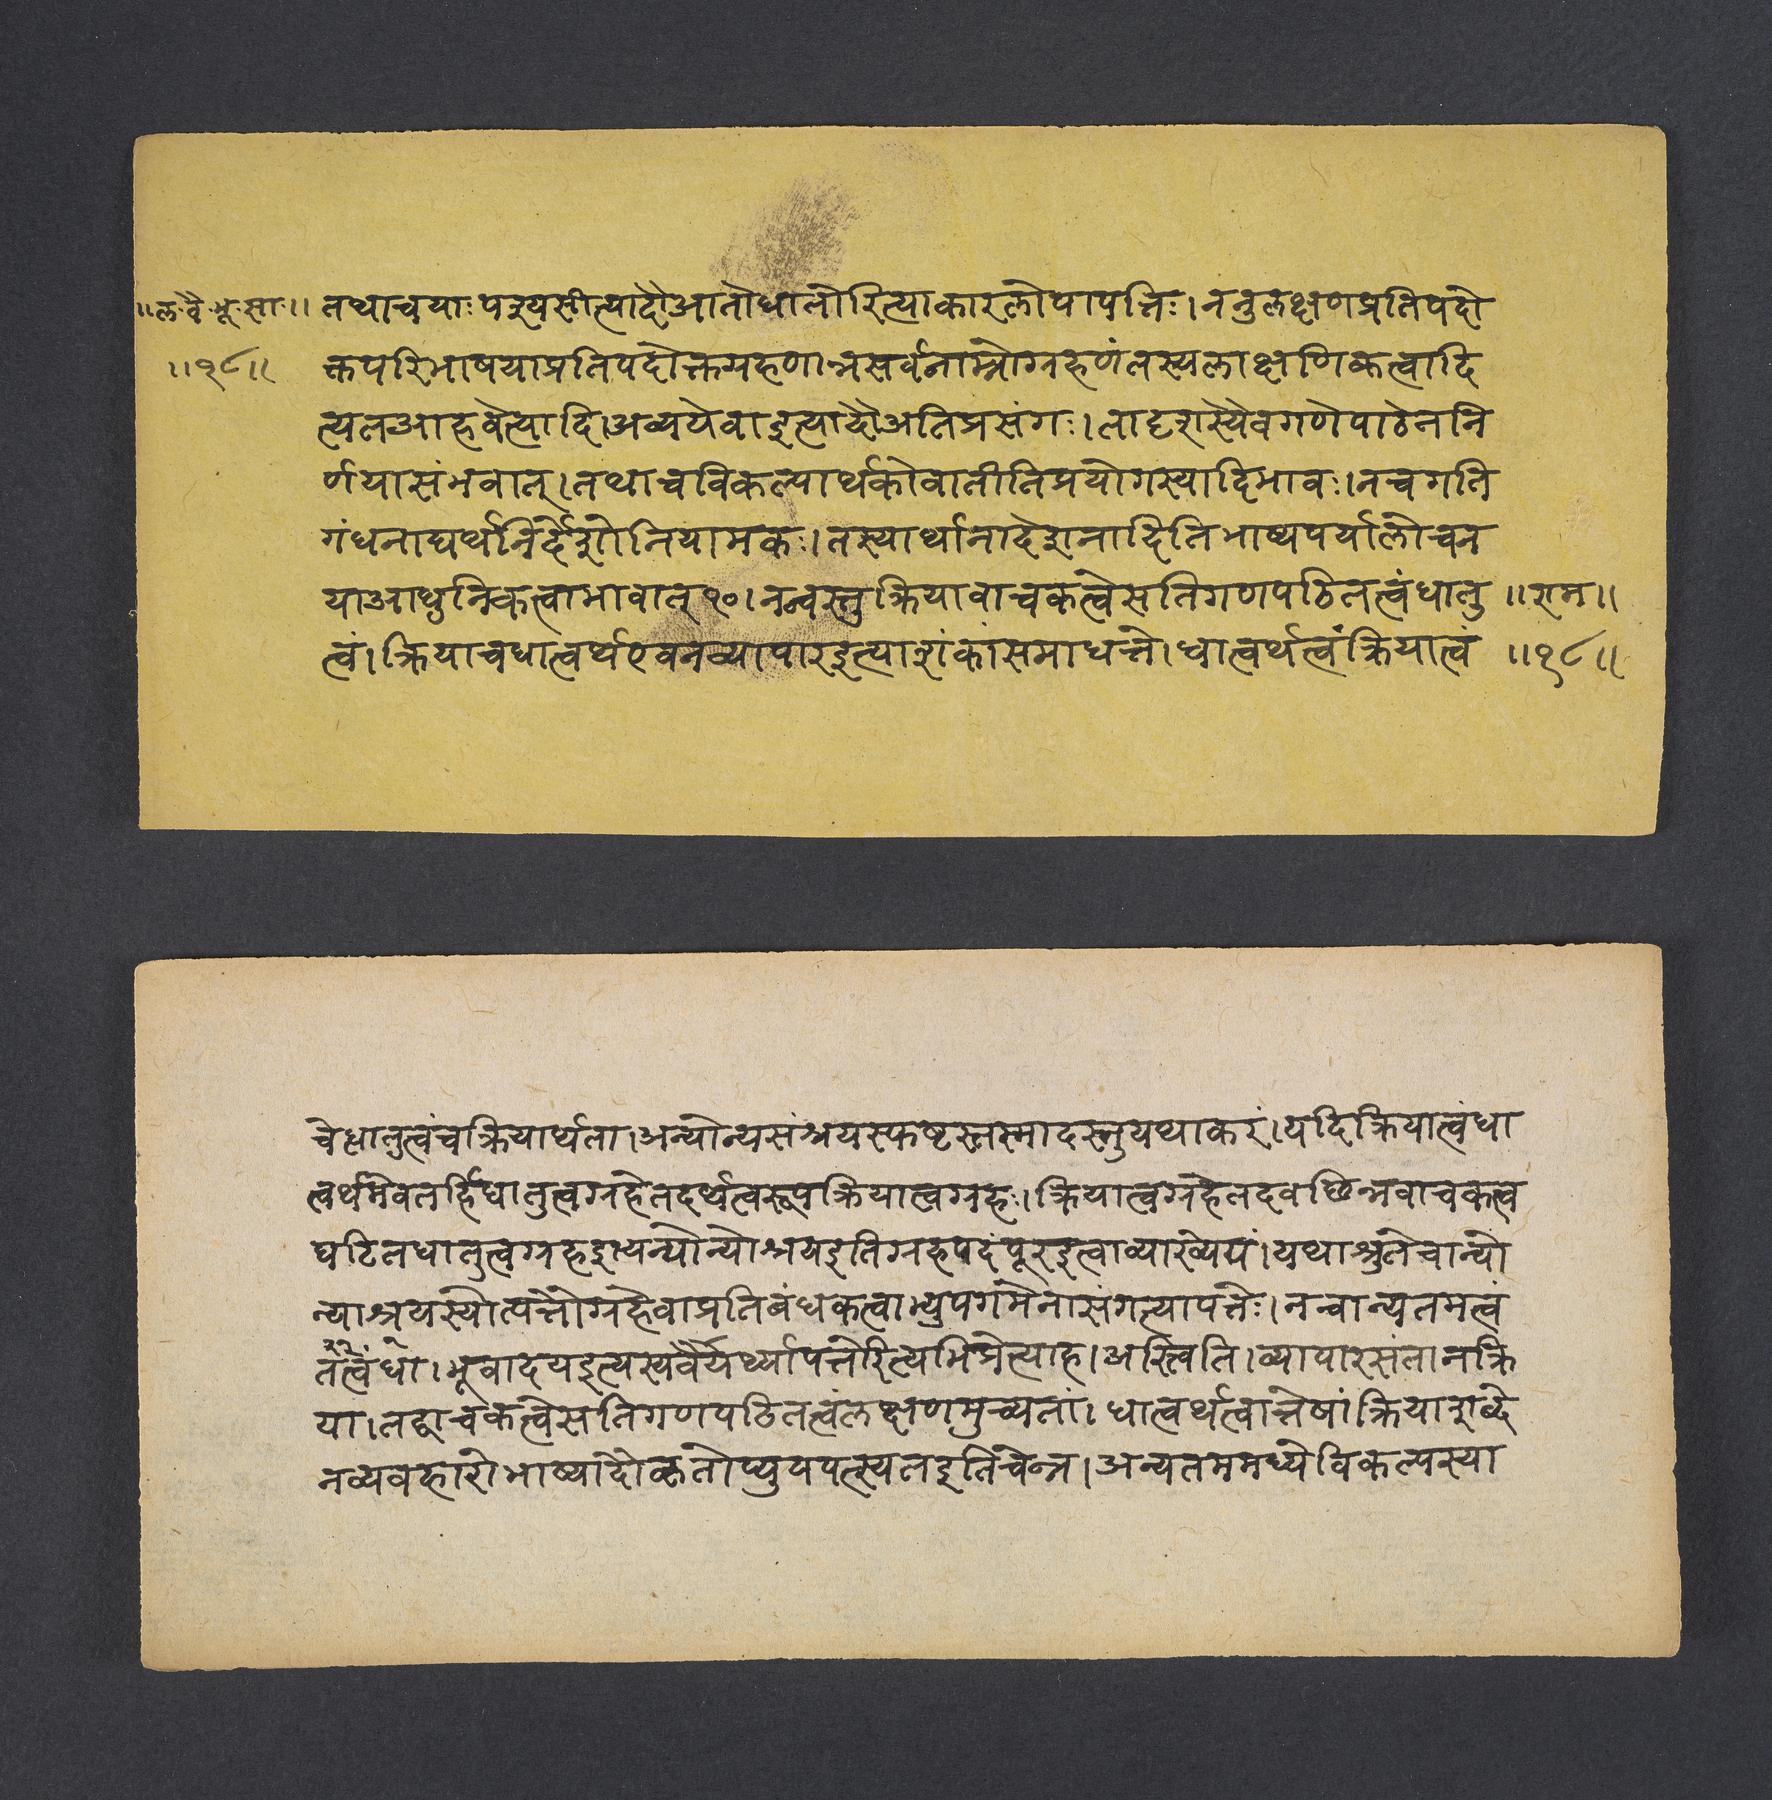 ॥ल॰वै॰भू॰सा॰॥ तथाचयाः पश्यसीत्यादौआतोधातोरित्याकारलोपापत्तिः। ननुलक्षणप्रतिपदो
॥१८॥ क्तपरिभाषयाप्रतिपदोक्तग्रहणान्नसर्वनाम्नोग्रहणंतस्यलाक्षणिकत्वादि
त्यतआहवेत्यादि।अव्ययेवाइत्यादौअतिप्रसंगः। तादृशस्यैवगणेपाठेननि
र्णयासंभवात्। तथाचविकल्पार्थकोवातीतिप्रयोगस्यादिभावः। नचगति
गंधनाद्यर्थनिर्देशोनियामकः। तस्यार्थानादेशनादितिभाष्यपर्यालोचन
याआधुनिकत्वाभावात् १०। नन्वस्तुक्रियावाचकत्वेसतिगणपठितत्वंधातु ॥राम॥
त्वं। क्रियाचधात्वर्थएवनव्यापारइत्याशंकांसमाधत्ते। धात्वर्थत्वंक्रियात्वं ॥१८॥
चेधातुत्वंचक्रियार्थता।अन्योन्यसंश्रयस्फष्टस्तस्मादस्तुयथाकरं।यदिक्रियात्वंधा
त्वर्थमेवतर्हिधातुत्वग्रहेतदर्थत्वरूपक्रियात्वग्रहः। क्रियात्वग्रहेतदवछिन्नवाचकत्व
घटितधातुत्वग्रहइत्यन्योन्याश्रयइतिग्रहपदंपूरइत्वाव्याख्येयं। यथाश्रुतेचान्यो
न्याश्रयस्योत्पत्तौग्रहेवाप्रतिबंधकत्वाभ्युपगमेनासंगत्यापत्तेः। नन्वान्यतमत्वं
तत्वंधा। भूवादयइत्यस्यवैर्यर्थ्यापत्तेरित्यभिप्रेत्याह। अस्त्विति। व्यापारसंतानक्रि
या। तद्वाचकत्वेसतिगणपठितत्वंलक्षणमुच्यतां। धात्वर्थत्वात्तेषांक्रियाशब्दे
नव्यवहारोभाष्यादौकृतोप्युपपत्स्यतइतिचेन्न। अन्यतममध्येविकल्पस्या